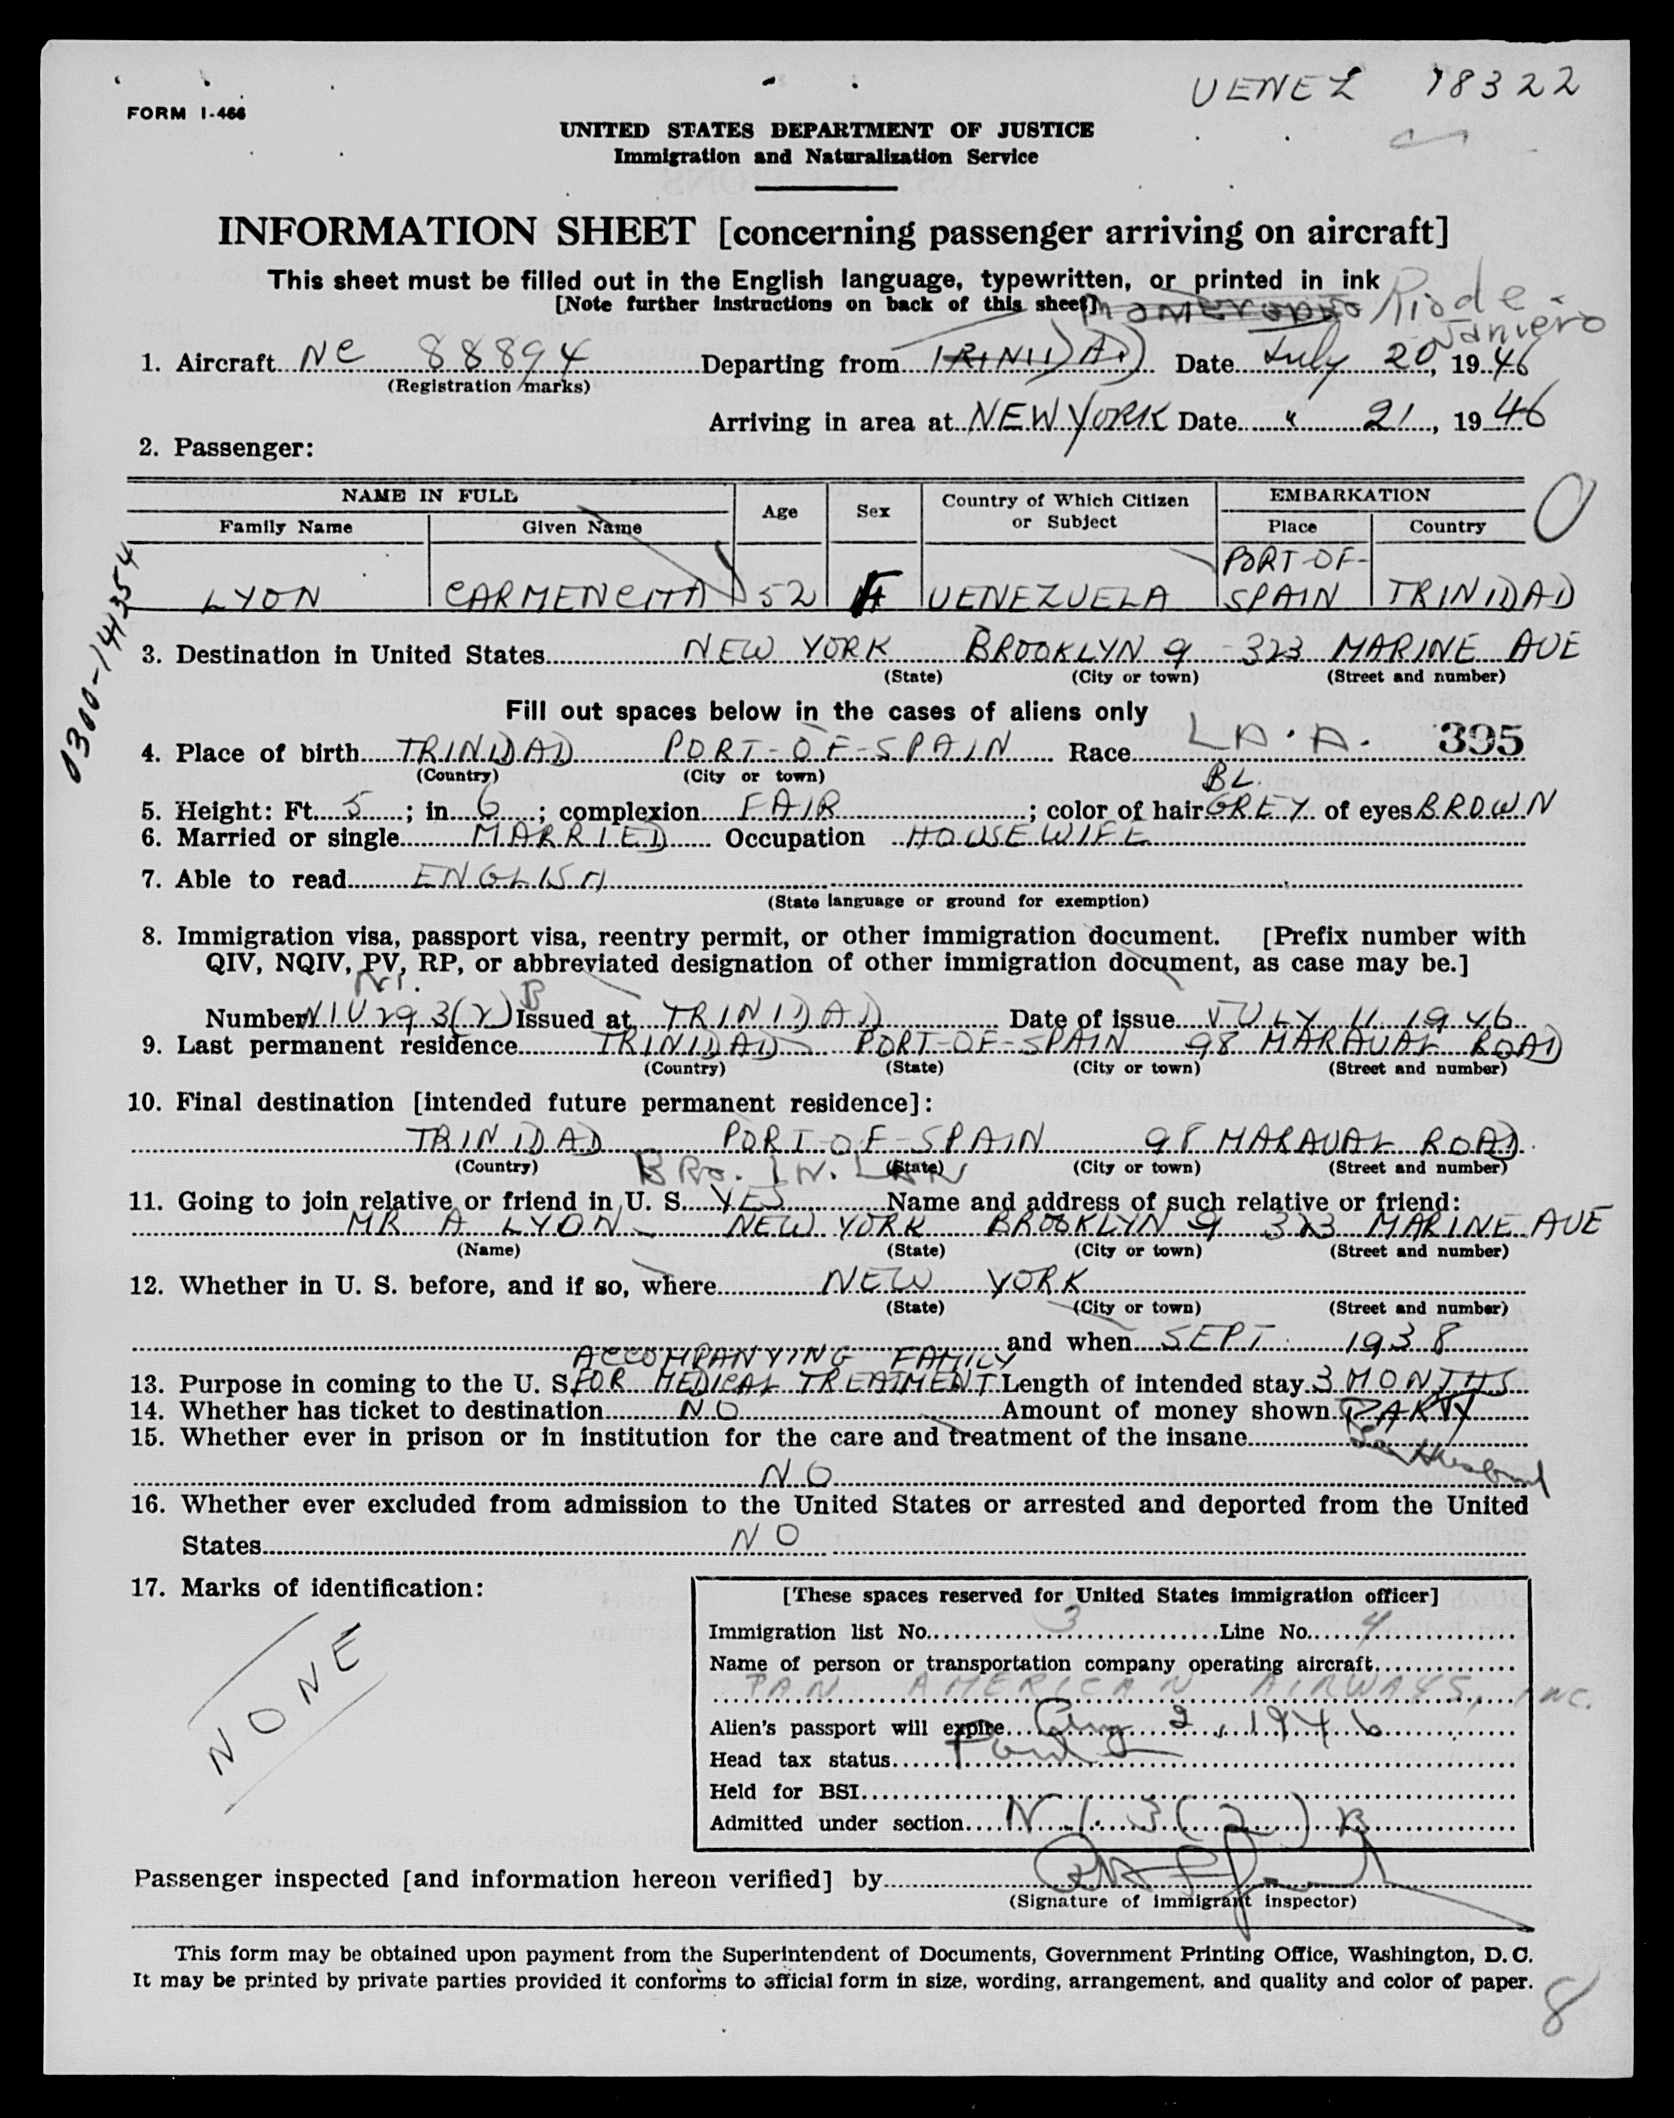 UENEZ 78322
FORM I-466
UNITED STATES DEPARTMENT OF JUSTICE
Immigration and Naturalization Service
INFORMATION SHEET [concerning passenger arriving on aircraft]
This sheet must be filled out in the English language, typewritten, or printed in ink
[Note further instructions on back of this sheet]
Rio de Janiero
1. Aircraft NC 88894 Departing from TRINIDAD Date July 20, 1946
(Registration marks)
Arriving in area at NEW YORK Date " 21, 1946
2. Passenger:
NAME IN FULL Age Sex Country of Which Citizen or Subject EMBARKATION
Family Name Given Name Place Country
LYON CARMENCITA 52 F UENEZUELA PORT-OF-SPAIN TRINIDAD
0
0300-141354
3. Destination in United States NEW YORK BROOKLYN 9 323 MARINE AUE
(State) (City or town) (Street and number)
Fill out spaces below in the cases of aliens only
4. Place of birth TRINIDAD PORT-OF-SPAIN Race L A. A. 395
(Country) (City or town)
BL.
5. Height: Ft. 5; in. 6; complexion FAIR; color of hair GREY of eyes BROWN
6. Married or single MARRIED Occupation HOUSEWIFE
7. Able to read ENGLISH
(State language or ground for exemption)
8. Immigration visa, passport visa, reentry permit, or other immigration document. [Prefix number with
QIV, NQIV, PV, RP, or abbreviated designation of other immigration document, as case may be.]
Number NIU 29 3(2) B Issued at TRINIDAD Date of issue JULY 11 1946
9. Last permanent residence TRINIDAD PORT-OF-SPAIN 98 MARAUAL ROAD
(Country) (State) (City or town) (Street and number)
10. Final destination [intended future permanent residence]:
TRINIDAD PORT-OF-SPAIN 98 MARAUAL ROAD.
(Country) (State) (City or town) (Street and number)
BRO. IN. LAW
11. Going to join relative or friend in U. S. YES Name and address of such relative or friend:
MR A LYON NEW YORK BROOKLYN 9 323 MARINE AUE
(Name) (State) (City or town) (Street and number)
12. Whether in U. S. before, and if so, where NEW YORK
(State) (City or town) (Street and number)
and when SEPT 1938
ACCOMPANYING FAMILY
13. Purpose in coming to the U. S. FOR MEDICAL TREATMENT Length of intended stay 3 MONTHS
14. Whether has ticket to destination NO Amount of money shown PARTY
15. Whether ever in prison or in institution for the care and treatment of the insane
See Husband
NO
16. Whether ever excluded from admission to the United States or arrested and deported from the United
States NO
17. Marks of identification:
NONE
[These spaces reserved for United States immigration officer]
Immigration list No. 3 Line No. 4
Name of person or transportation company operating aircraft
PAN AMERICAN AIRWAYS, INC.
Alien's passport will expire Aug 2, 1946
Head tax status Paid
Held for BSI
Admitted under section N.I. 3(2) B
Passenger inspected [and information hereon verified] by
(Signature of immigrant inspector)
This form may be obtained upon payment from the Superintendent of Documents, Government Printing Office, Washington, D. C.
It may be printed by private parties provided it conforms to official form in size, wording, arrangement, and quality and color of paper.
8